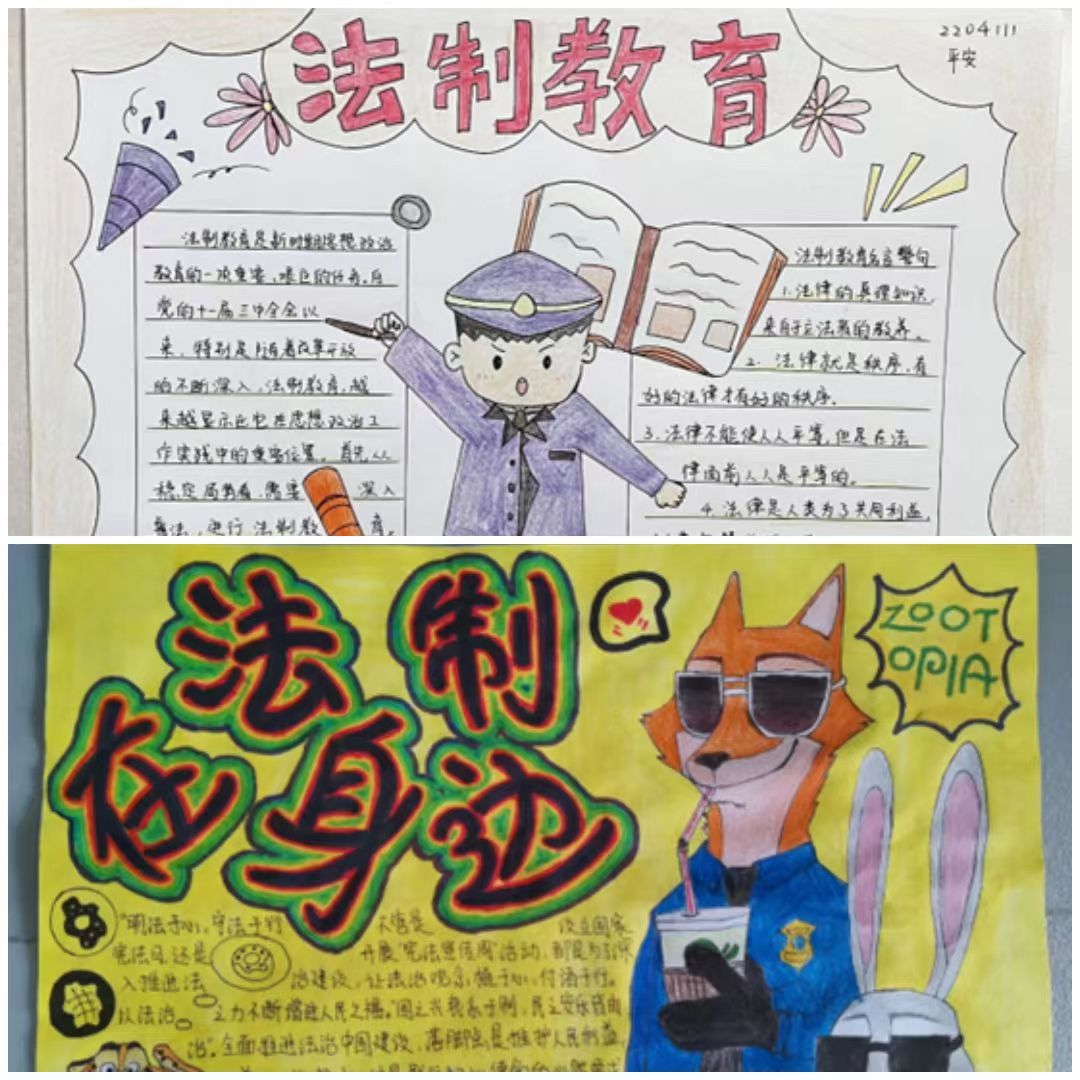 法制教育
2204111
平安
法制教育是新时期思想政治
教育的一项重要、艰巨的任务,自
党的十一届三中全会以
来,特别是随着改革开放
的不断深入,法制教育越
来越显示出它在思想政治工
作实践中的重要位置。首先从
稳定局势看,需要 深入
普法,进行法制教 育,
法制教育名言警句
1.法律的真理知识,
来自于立法者的教养。
2. 法律就是秩序,有
好的法律才有好的秩序.
3.法律不能使人人平等,但是在法
律面前人人是平等的。
4.法律是人类为了共同利益,
法制
在身边
ZOOT
OPIA
"明法于心,守法于行 不管是 设立国家
宪法日,还是 开展"宪法宣传周"活动,都是为了深
入推进法 治建设,让法治观念 植于心,付诸于行。
以法治 之力不断增进人民之福。
治",全面推进法治中国建设,落脚点是维护人民利益,